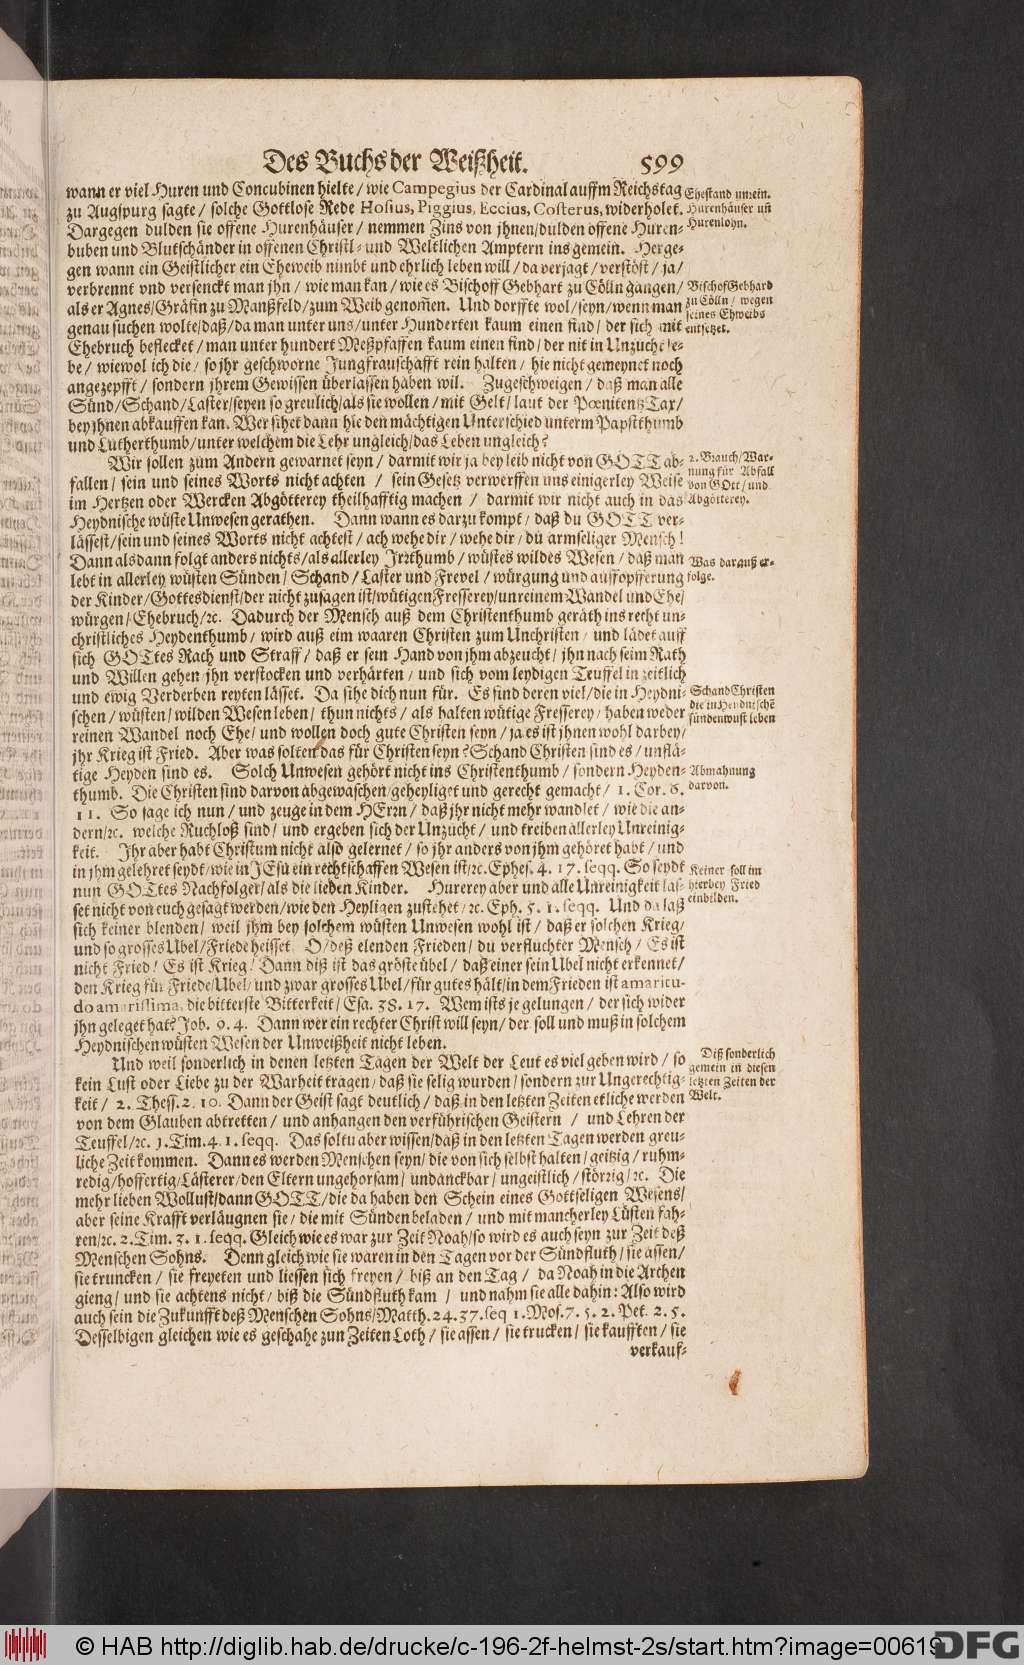 Des Buchs der Weißheit. 599
wann er viel Huren und Concubinen hielte / wie Campegius der Cardinal auffm Reichstag
zu Augspurg sagte / solche Gottlose Rede Hosius, Piggius, Eccius, Costerus, widerholet.
Dargegen dulden sie offene Hurenhäuser / nemmen Zins von jhnen/dulden offene Huren-
buben und Blutschänder in offenen Christl- und Weltlichen Amptern ins gemein. Herge-
gen wann ein Geistlicher ein Eheweib nimbt und ehrlich leben will / da verjagt / verstöst / ja /
verbrennt vnd versenckt man jhn / wie man kan / wie es Bischoff Gebhart zu Cölln gangen /
als er Agnes/Gräfin zu Manßfeld/zum Weib genom̃en. Und dorffte wol/seyn/wenn man
genau suchen wolte/daß/da man unter uns/unter Hunderten kaum einen find / der sich mit
Ehebruch beflecket / man unter hundert Meßpfaffen kaum einen find / der nit in Unzucht le-
be / wiewol ich die / so jhr geschworne Jungfrauschafft rein halten / hie nicht gemeynet noch
angezepfft / sondern jhrem Gewissen überlassen haben wil. Zugeschweigen / daß man alle
Sünd/Schand/Laster/seyen so greulich/als sie wollen / mit Gelt / laut der PœnitentzTax /
bey jhnen abkauffen kan. Wer sihet dann hie den mächtigen Unterschied unterm Papstthumb
und Lutherthumb/unter welchem die Lehr ungleich/das Leben ungleich?
Wir sollen zum Andern gewarnet seyn / darmit wir ja bey leib nicht von GOTT ab-
fallen / sein und seines Worts nicht achten / sein Gesetz verwerffen uns einigerley Weise
im Hertzen oder Wercken Abgötterey theilhafftig machen / darmit wir nicht auch in das
Heydnische wüste Unwesen gerathen. Dann wann es darzu kompt / daß du GOTT ver-
lässest/sein und seines Worts nicht achtest / ach wehe dir / wehe dir / du armseliger Mensch!
Dann alsdann folgt anders nichts/als allerley Jrrthumb / wüstes wildes Wesen / daß man
lebt in allerley wüsten Sünden / Schand / Laster und Frevel / würgung und auffopfferung
der Kinder/Gottesdienst/der nicht zusagen ist/wütigen Fresserey/unreinem Wandel und Ehe/
würgen / Ehebruch/ꝛc. Dadurch der Mensch auß dem Christenthumb geräth ins recht un-
christliches Heydenthumb / wird auß eim waaren Christen zum Unchristen / und lädet auff
sich GOTtes Rach und Straff / daß er sein Hand von jhm abzeucht / jhn nach seim Rath
und Willen gehen jhn verstocken und verhärten / und sich vom leydigen Teuffel in zeitlich
und ewig Verderben reyten lässet. Da sihe dich nun für. Es sind deren viel / die in Heydni-
schen / wüsten / wilden Wesen leben / thun nichts / als halten wütige Fresserey / haben weder
reinen Wandel noch Ehe/ und wollen doch gute Christen seyn / ja es ist jhnen wohl darbey/
jhr Krieg ist Fried. Aber was solten das für Christen seyn? Schand Christen sind es / unflä-
tige Heyden sind es. Solch Unwesen gehört nicht ins Christenthumb / sondern Heyden-
thumb. Die Christen sind darvon abgewaschen/geheyliget und gerecht gemacht / 1. Cor. 6.
11. So sage ich nun / und zeuge in dem HErrn / daß jhr nicht mehr wandlet / wie die an-
dern/ꝛc. welche Ruchloß sind / und ergeben sich der Unzucht / und treiben allerley Unreinig-
keit. Jhr aber habt Christum nicht also gelernet / so jhr anders von jhm gehöret habt / und
in jhm gelehret seydt/wie in JEsu ein rechtschaffen Wesen ist/ꝛc. Ephes. 4. 17. seqq. So seydt
nun GOTtes Nachfolger/als die lieben Kinder. Hurerey aber und alle Unreinigkeit las-
set nicht von euch gesagt werden/wie den Heyligen zustehet / ꝛc. Eph. 5. 1. seqq. Und da laß
sich keiner blenden / weil jhm bey solchem wüsten Unwesen wohl ist / daß er solchen Krieg/
und so grosses Ubel/Friede heisset. O / deß elenden Frieden / du verfluchter Mensch / Es ist
nicht Fried / Es ist Krieg / Dann diß ist das gröste übel / daß einer sein Ubel nicht erkennet /
den Krieg für Friede/Ubel/ und zwar grosses Ubel/für gutes hält/in dem Frieden ist amaritu-
do amarissima, die bitterste Bitterkeit / Esa. 38. 17. Wem ists je gelungen / der sich wider
jhn geleget hat? Job. 9. 4. Dann wer ein rechter Christ will seyn / der soll und muß in solchem
Heydnischen wüsten Wesen der Unweißheit nicht leben.
Und weil sonderlich in denen letzten Tagen der Welt der Leut es viel geben wird / so
kein Lust oder Liebe zu der Warheit tragen / daß sie selig wurden / sondern zur Ungerechtig-
keit / 2. Thess. 2. 10. Dann der Geist sagt deutlich / daß in den letzten Zeiten etliche werden
von dem Glauben abtretten / und anhangen den verführischen Geistern / und Lehren der
Teuffel/ꝛc. 1. Tim. 4. 1. seqq. Das soltu aber wissen/daß in den letzten Tagen werden greu-
liche Zeit kommen. Dann es werden Menschen seyn / die von sich selbst halten / geitzig / ruhm-
redig/hoffertig/Lästerer/den Eltern ungehorsam / undanckbar / ungeistlich / störrig / ꝛc. Die
mehr lieben Wollust/dann GOTT/die da haben den Schein eines Gottseligen Wesens/
aber seine Krafft verläugnen sie / die mit Sünden beladen / und mit mancherley Lüsten fah-
ren/ꝛc. 2. Tim. 3. 1. seqq. Gleich wie es war zur Zeit Noah/so wird es auch seyn zur Zeit deß
Menschen Sohns. Denn gleich wie sie waren in den Tagen vor der Sündfluth / sie assen /
sie truncken / sie freyeten und liessen sich freyen / biß an den Tag / da Noah in die Archen
gieng / und sie achtens nicht / biß die Sündfluth kam / und nahm sie alle dahin: Also wird
auch sein die Zukunfft deß Menschen Sohns/Matth. 24. 37. seq 1. Mos. 7. 5. 2. Pet. 2. 5.
Desselbigen gleichen wie es geschahe zun Zeiten Loth / sie assen / sie trucken / sie kaufften / sie
verkauf-
Ehestand unrein.
Hurenhäuser uñ
Hurenlohn.
Bischof Gebhard
zu Cölln / wegen
seines Ehweibs
entsetzet.
2. Brauch/War-
nung für Abfall
von GOtt / und
Abgötterey.
Was darauß er-
folge.
Schand Christen
die in Heydnischẽ
sündenwust leben
Abmahnung
darvon.
Keiner soll im
hierbey Fried
einbilden.
Diß sonderlich
gemein in diesen
letzten Zeiten der
Welt.
© HAB http://diglib.hab.de/drucke/c-196-2f-helmst-2s/start.htm?image=00619
DFG